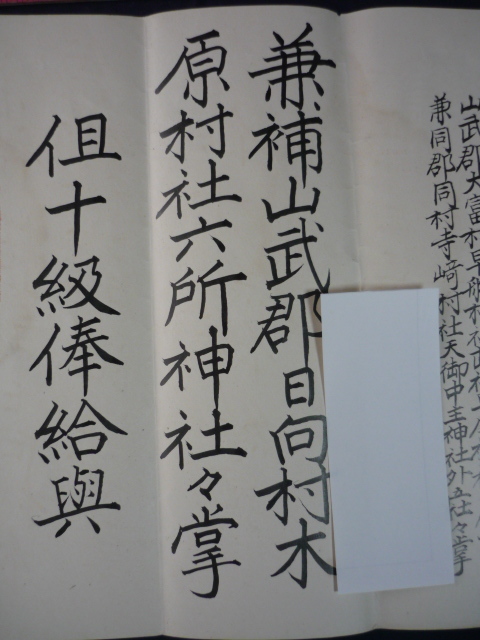 山武郡大富村早船村社
兼同郡同村寺崎村社天御中主神社外五社々掌
兼補山武郡日向村木
原村社六所神社々掌
但十級俸給與